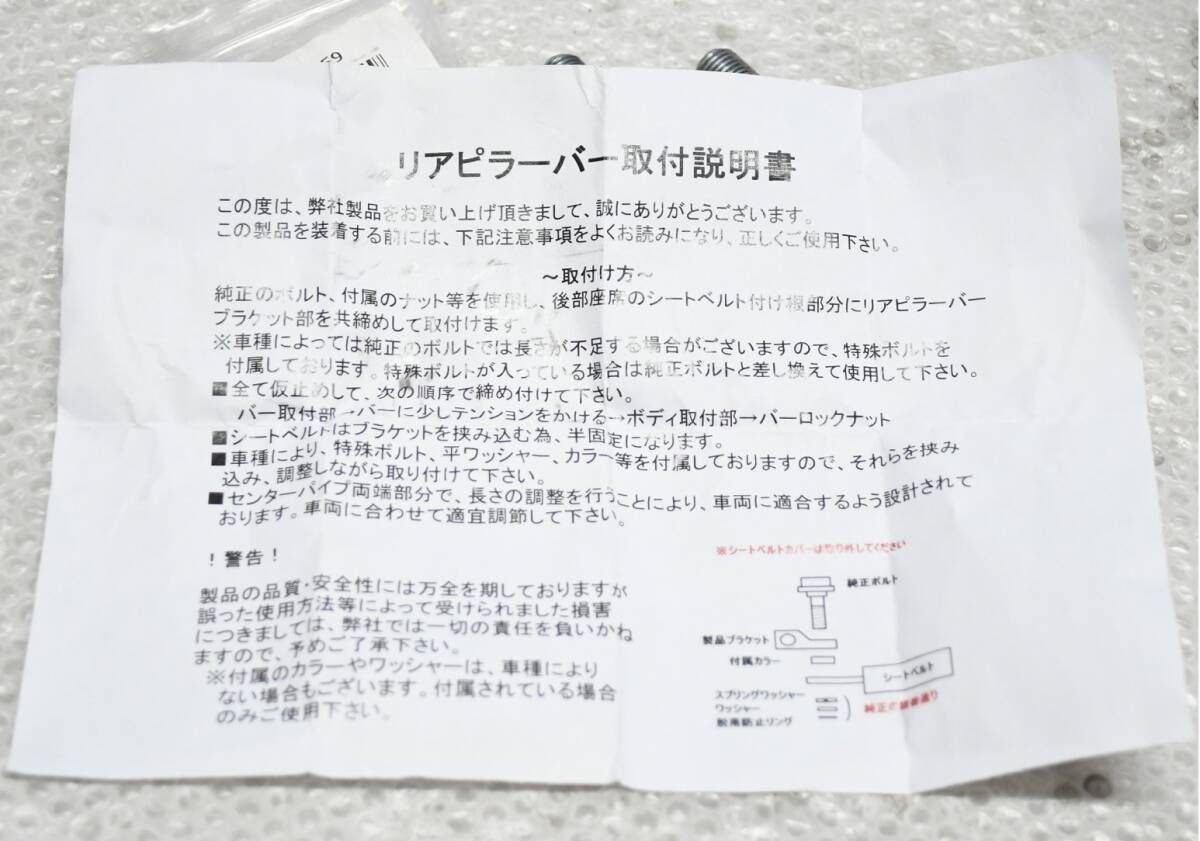 59
リアピラーバー取付説明書
この度は、弊社製品をお買い上げ頂きまして、誠にありがとうございます。
この製品を装着する前には、下記注意事項をよくお読みになり、正しくご使用下さい。
～取付け方～
純正のボルト、付属のナット等を使用し、後部座席のシートベルト付け根部分にリアピラーバー
ブラケット部を共締めして取付けます。
※車種によっては純正のボルトでは長さが不足する場合がございますので、特殊ボルトを
付属しております。特殊ボルトが入っている場合は純正ボルトと差し換えて使用して下さい。
■全て仮止めして、次の順序で締め付けて下さい。
バー取付部→バーに少しテンションをかける→ボディ取付部→バーロックナット
■シートベルトはブラケットを挟み込む為、半固定になります。
■車種により、特殊ボルト、平ワッシャー、カラー等を付属しておりますので、それらを挟み
込み、調整しながら取り付けて下さい。
■センターパイプ両端部分で、長さの調整を行うことにより、車両に適合するよう設計されて
おります。車両に合わせて適宜調節して下さい。
！警告！
製品の品質・安全性には万全を期しておりますが
誤った使用方法等によって受けられました損害
につきましては、弊社では一切の責任を負いかね
ますので、予めご了承下さい。
※付属のカラーやワッシャーは、車種により
ない場合もございます。付属されている場合
のみご使用下さい。
※シートベルトカバーは取り外してください
純正ボルト
製品ブラケット
付属カラー
シートベルト
スプリングワッシャー
ワッシャー
脱落防止リング
純正の順番通り